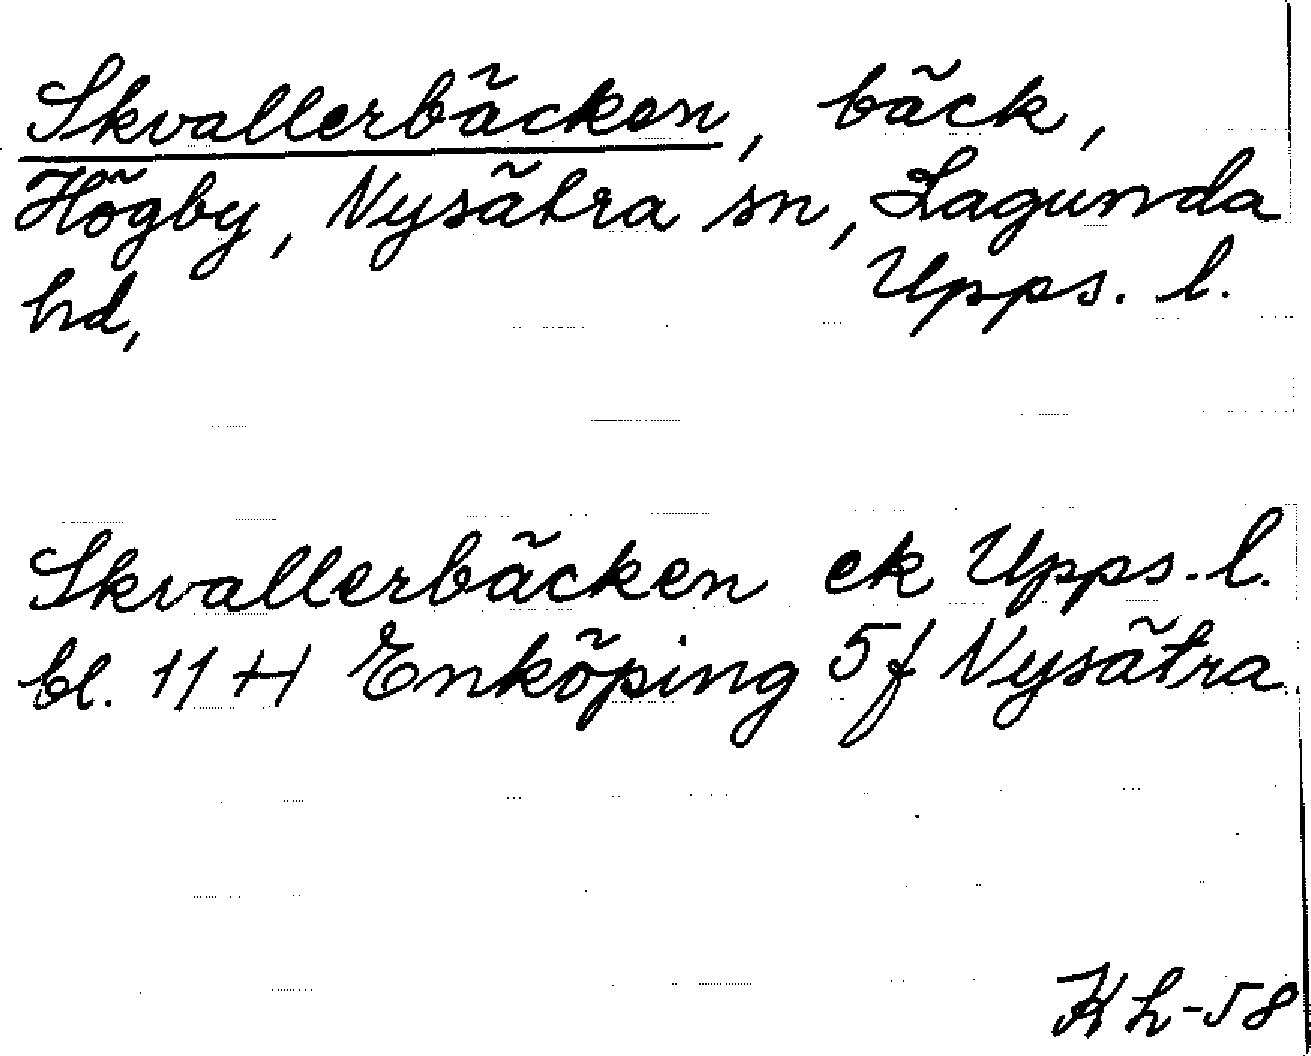 Skvallerbäcken, bäck,
Högby, Nysätra sn, Lagunda
hd, Upps. l.
Skvallerbäcken ek Upps. l.
bl. 11 H Enköping 5f Nysätra
KL-58